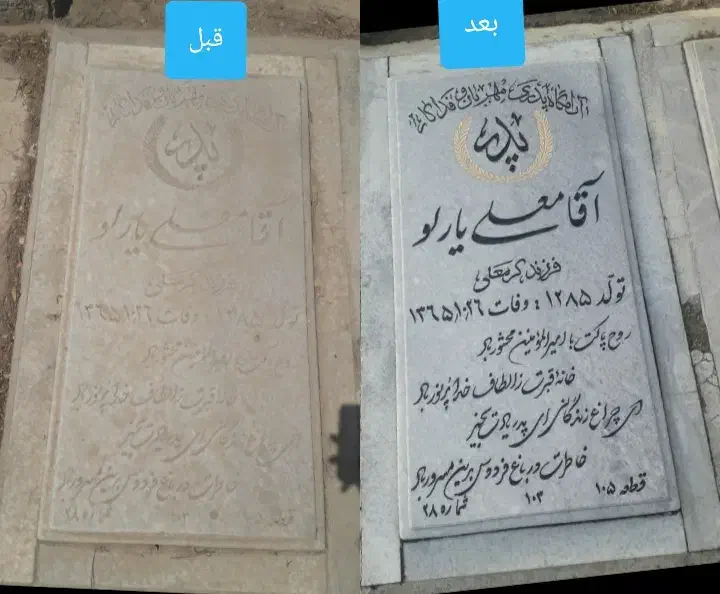 قبل
بعد
آرامگاه پدری مهربان و فداکار
پدر
آقا معلی یارلو
فرزند کرمعلی
تولد ۱۲۸۵ : وفات ۱۳۶۵/۱۰/۲۶
روح پاکت با امیرالمؤمنین محشور باد
خانۀ قبرت ز الطاف خدا پرنور باد
ای چراغ زندگانی ای پدر یادت بخیر
خاطرت در باغ فردوس برین مسرور باد
قطعه ۱۰۵ ۱۰۳ شماره ۲۸